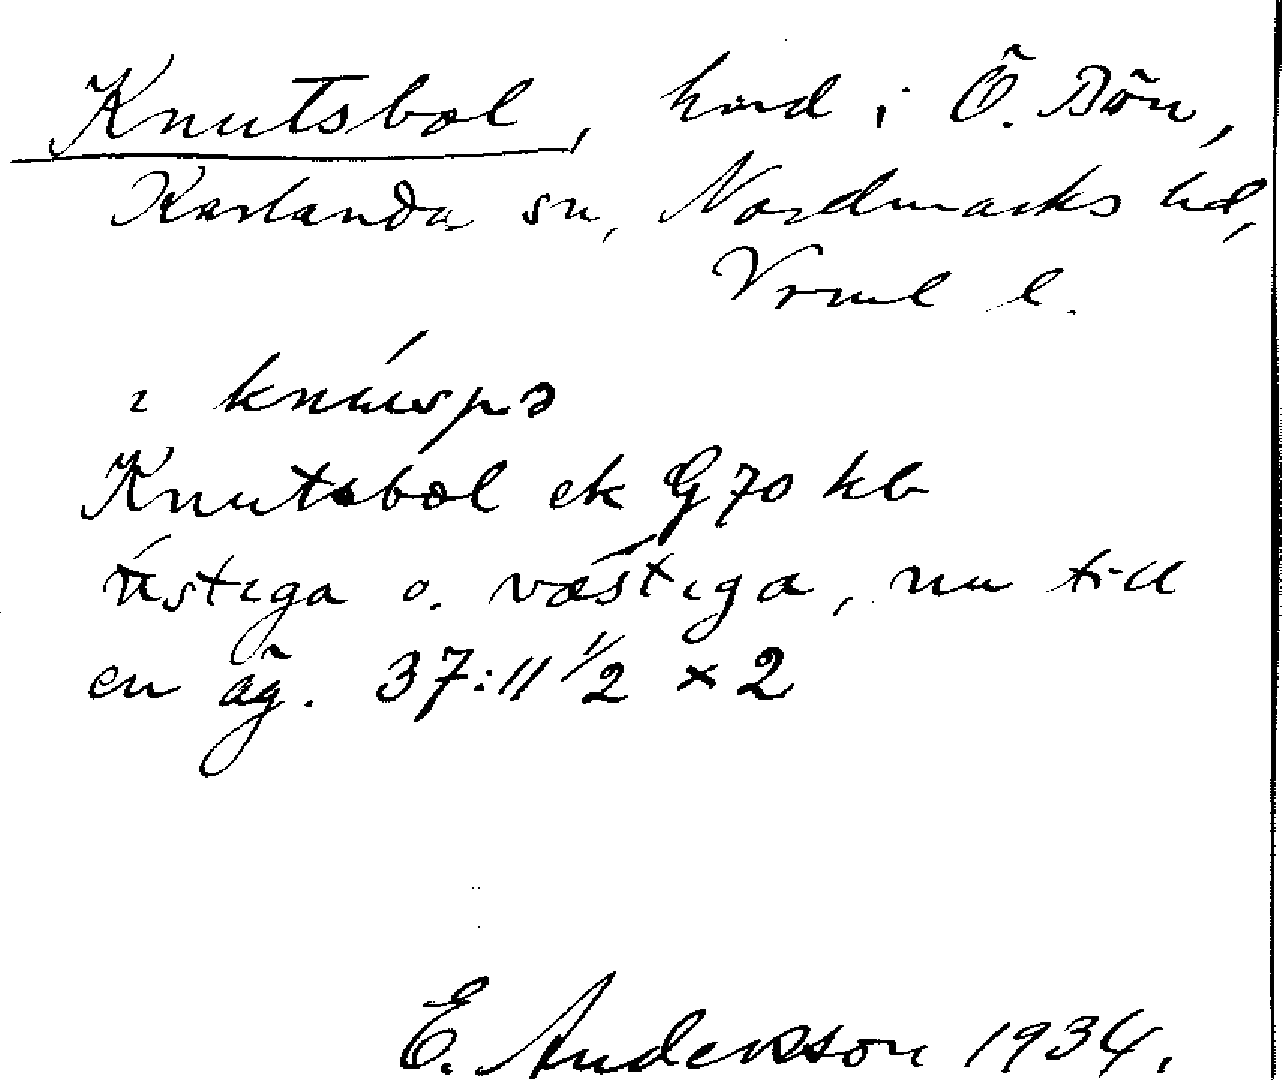 Knutsbol, hmd i Ö. Bön,
Karlanda sn, Nordmarks hd,
Vrml l.
ɩ knúwspə
Knutsbol ek G 70 kb
ústɩga o. vǽstɩga, nu till
en äg. 37:11 1/2 × 2
E. Anderson 1934.